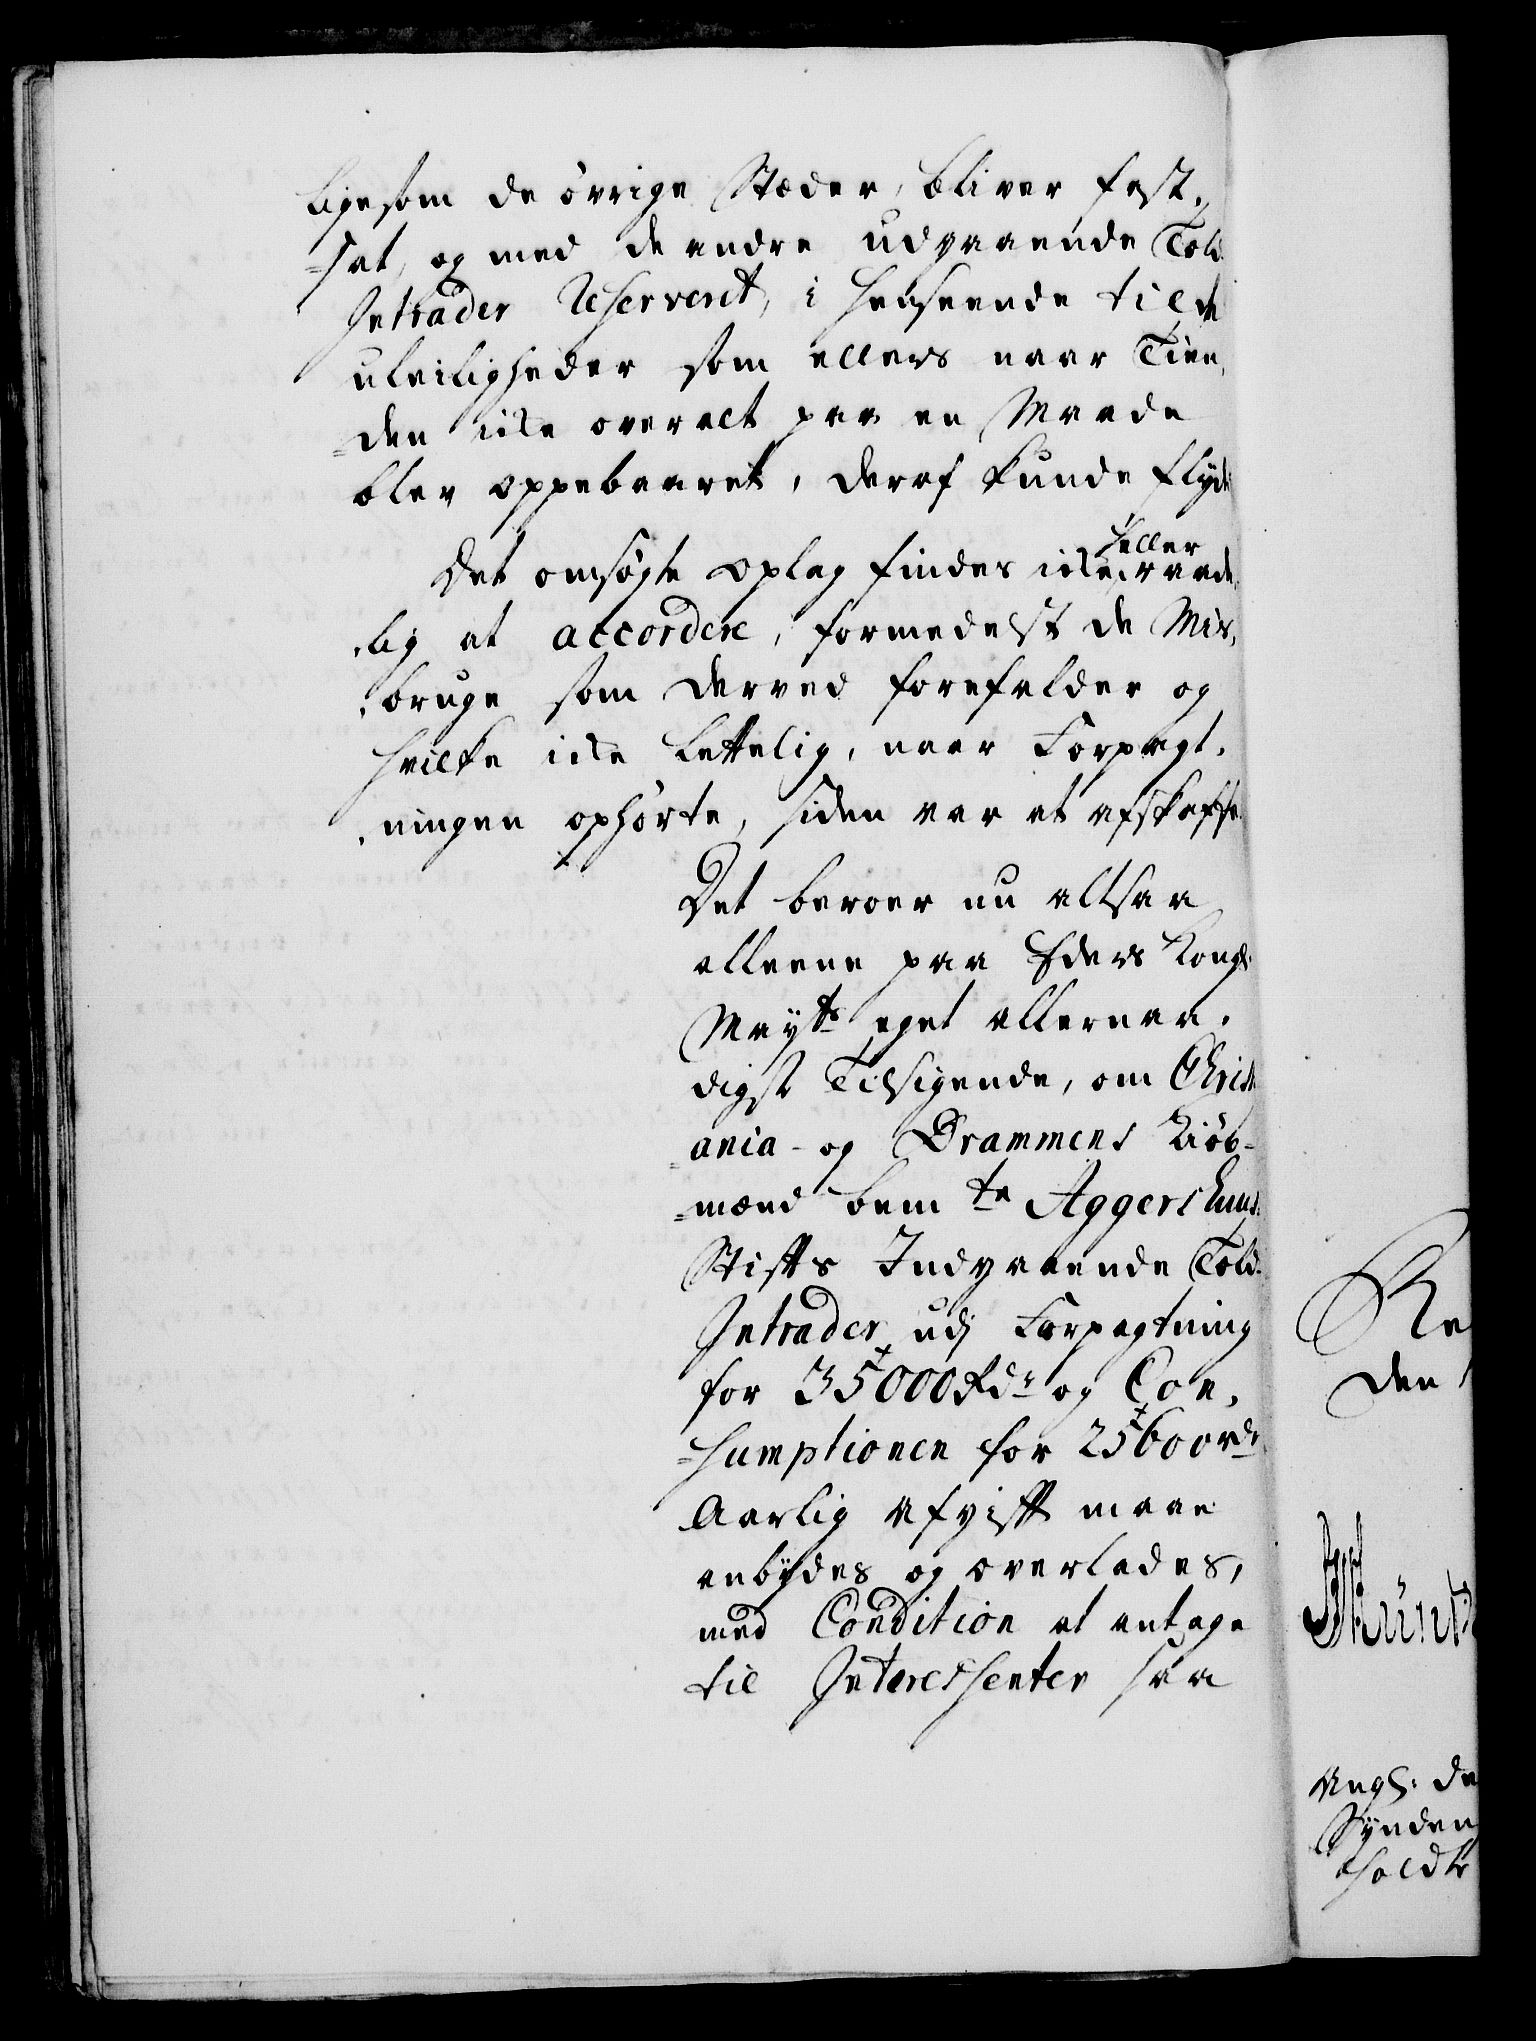 ligesom de øvrige Stæder, bliver fest-
=sat, og med de andre udgaaende Told
Intrader Reservert, i henseende til de
uleiligheder som ellers naar Tien-
=den icke overalt paa en Maade
blev oppebaaret, deraf kunde flyde
Det omsøgte oplag findes icke heller raade-
-lig at accordere, formedelst de Mis-
-bruge som derved forefalder og
hvilke icke lettelig, naar Forpagt-
-ningen ophørte, siden var at afskaffe.
Det beroer nu altsaa
alleene paa Eders Kongl.
Mayts eget allernaa-
digst Tilsigende, om Christi
=ania- og Drammens Kiøb-
=mænd bem te Aggershuus
Stifts Indgaaende Told-
Intrader udj Forpagtning
for 35000 Rdr og Con-
=sumptionen for 25600 rdr
Aarlig afgift maae
anbydes og overlades,
med Condition at antage
til Interessenter saa
Re
den
Angl: de
Synden
holdte